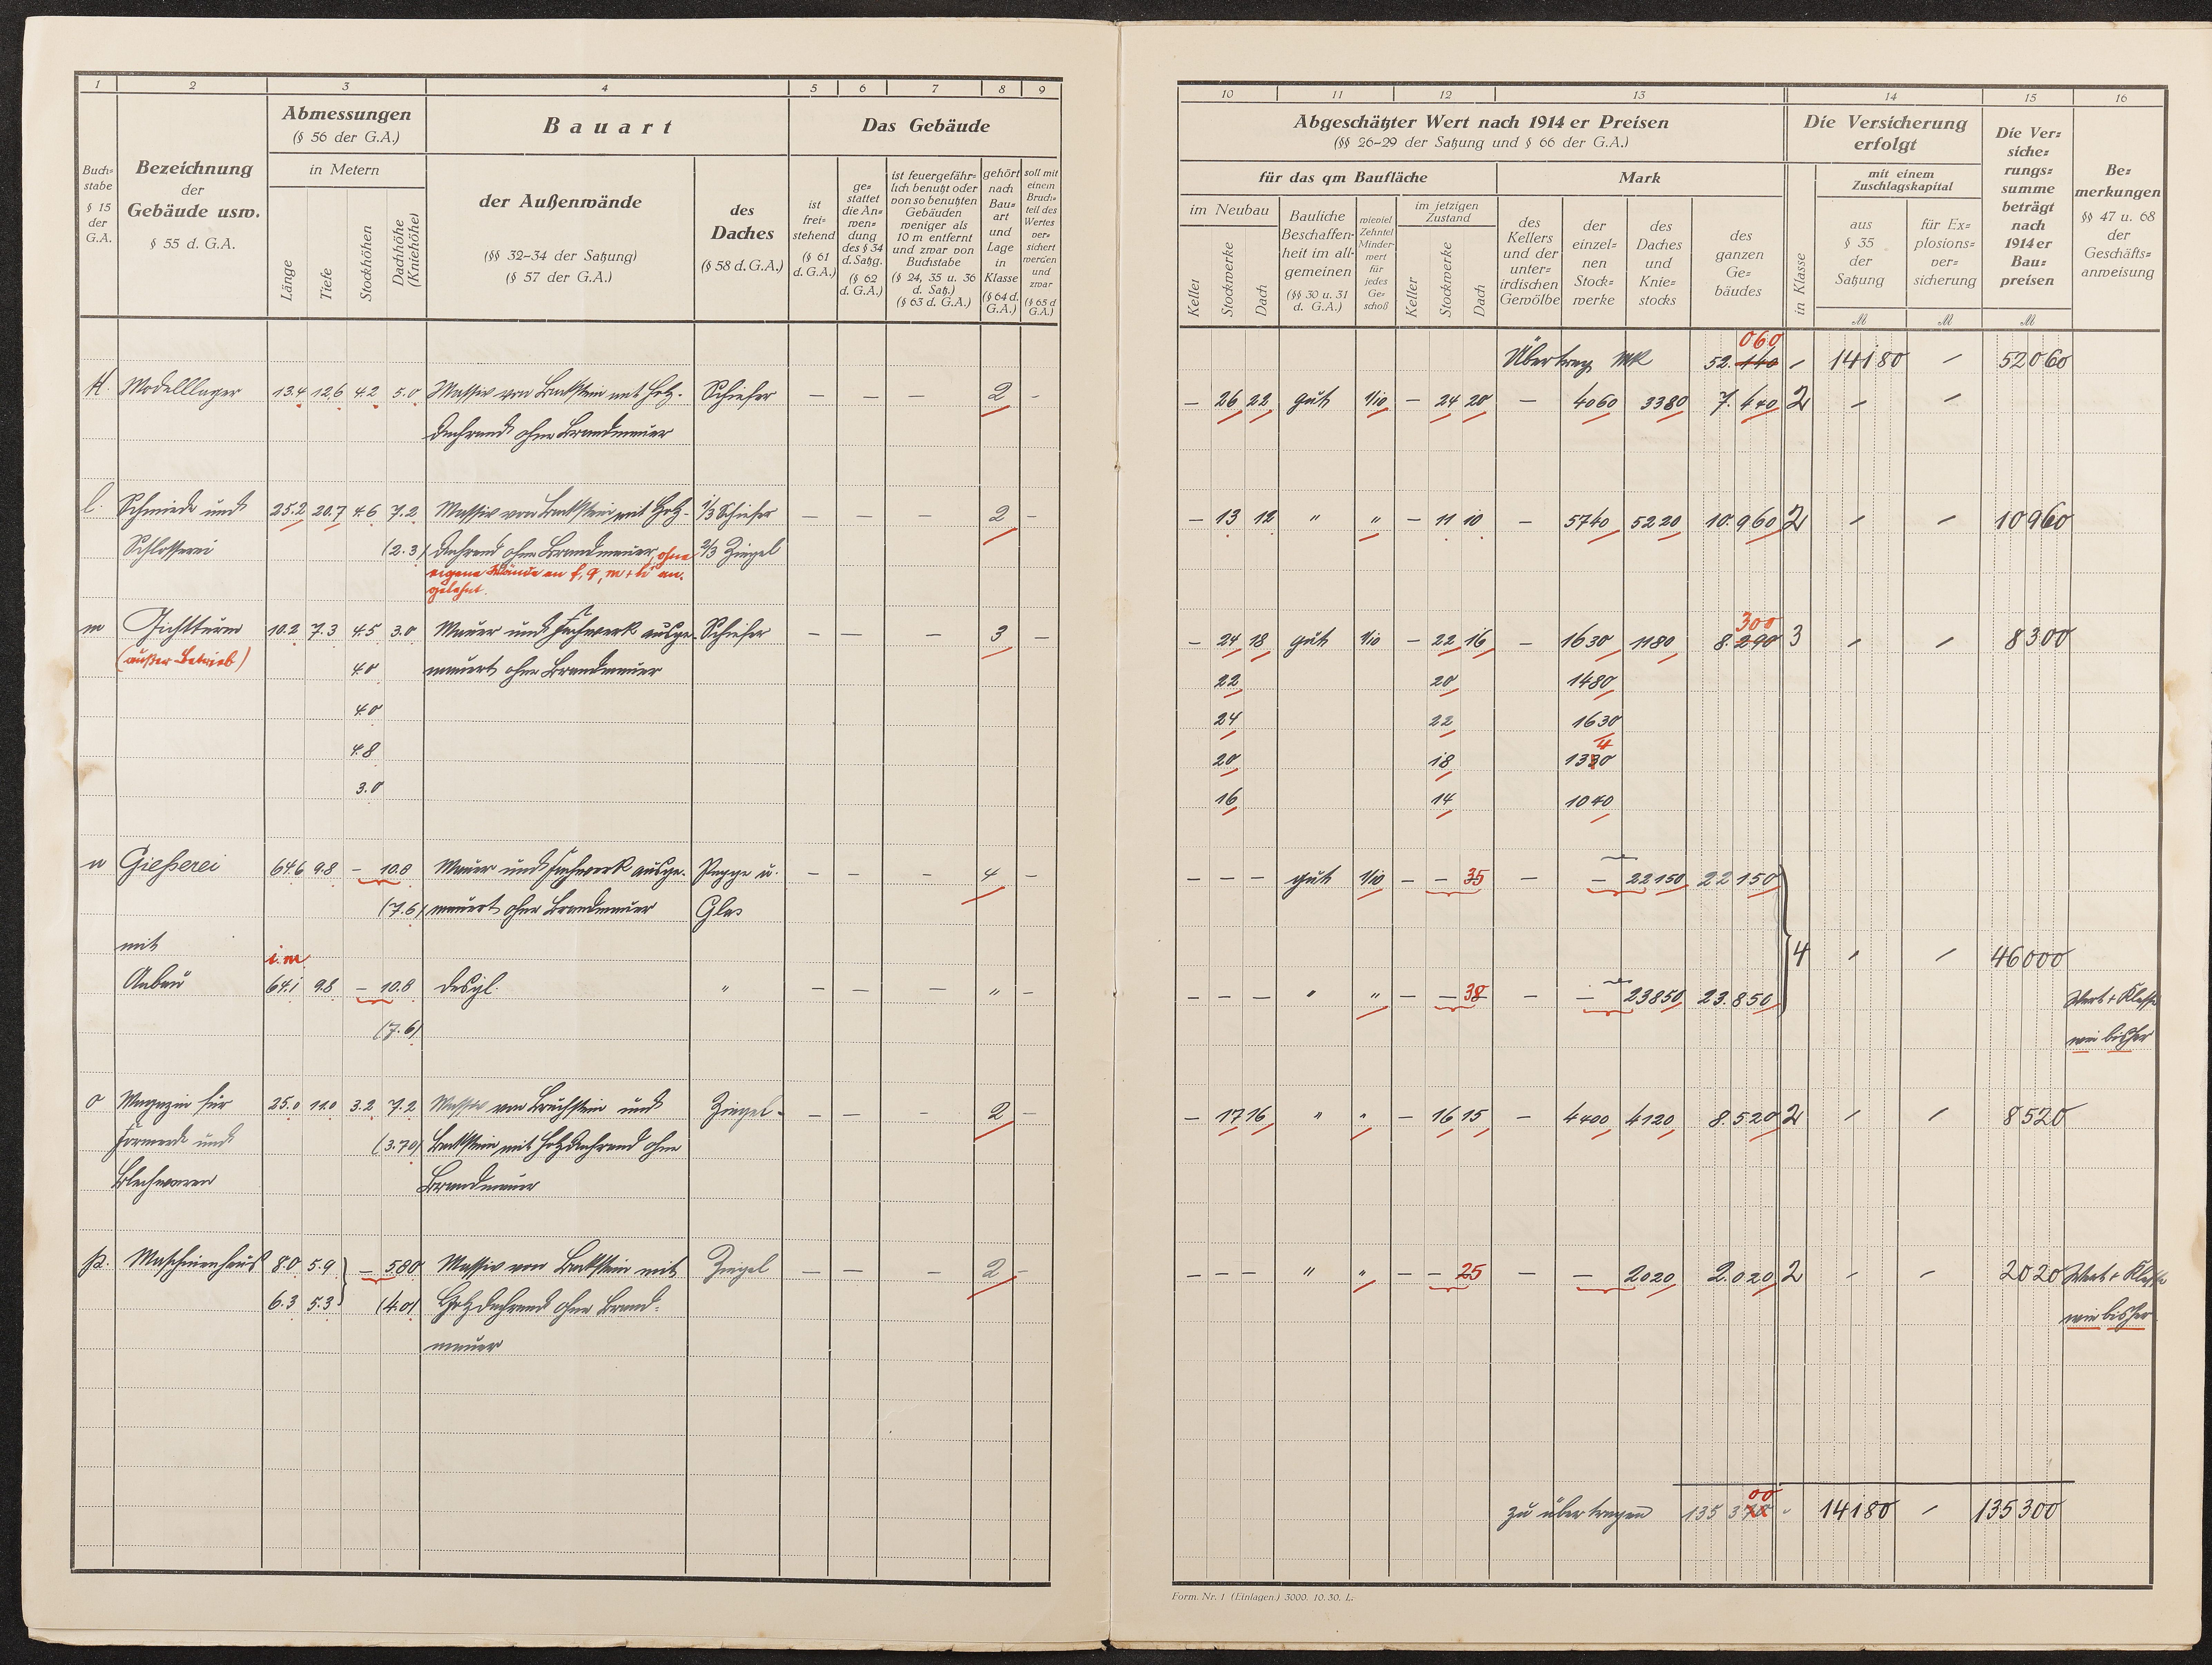 1 2 3 4 5 6 7 8 9
Buch=
stabe
§ 15
der
G.A.
Bezeichnung
der
Gebäude usw.
§ 55 d. G.A.
Abmessungen
(§ 56 der G.A.)
in Metern
Länge
Tiefe
Stockhöhen
Dachhöhe
(Kniehöhe)
Bauart
der Außenwände
(§§ 32-34 der Satzung)
(§ 57 der G.A.)
des
Daches
(§ 58 d. G.A.)
Das Gebäude
ist
frei=
stehend
(§ 61
d. G.A.)
ge=
stattet
die An=
wen=
dung
des § 34
d. Satzg.
(§ 62
d. G.A.)
ist feuergefähr=
lich benutzt oder
von so benutzten
Gebäuden
weniger als
10 m entfernt
und zwar von
Buchstabe
(§ 24, 35 u. 36
d. Satz.)
(§ 63 d. G.A.)
gehört
nach
Bau=
art
und
Lage
in
Klasse
(§ 64 d.
G.A.)
soll mit
einem
Bruch=
teil des
Wertes
ver=
sichert
werden
und
zwar
(§ 65 d
G.A.)
K. Modelllager 13.4 12.6 4.2 5.0 Massiv von Backstein mit Holz- Schiefer — — — 2 -
dachrand ohne Brandmauer
l. Schmiede und 25.2 20.7 4.6 7.2 Massiv von Backstein mit Holz- 1/3 Schiefer — — — 2 -
Schlosserei (2.3) dachrand ohne Brandmauer, ohne 2/3 Ziegel
eigene Wände an f, g, m + h an-
gelehnt.
m Gichtturm 10.2 7.3 4.5 3.0 Mauer und Fachwerk ausge- Schiefer — — — 3 —
(außer Betrieb) 4.0 mauert ohne Brandmauer
4.0
4.8
3.0
n Gießerei 64.6 9.8 — 10.8 Mauer und Fachwerk ausge- Pappe u. — — — 4 -
(7.6) mauert ohne Brandmauer Glas
mit
i. m.
Anbau 64.1 9.8 — 10.8 desgl. " — — — " -
(7.6)
o Magazin für 25.0 11.0 3.2 7.2 Massiv von Bruchstein und Ziegel - — — — 2 —
Formerei und (3.70) Backstein mit Holzdachrand ohne
Blechwaren Brandmauer
p. Maschinenhaus 8.0 5.9 } — 5.80 Massiv von Backstein mit Ziegel — — — 2 -
6.3 5.3 (4.0) Holzdachrand ohne Brand-
mauer
10 11 12 13 14 15 16
Abgeschätzter Wert nach 1914 er Preisen
(§§ 26-29 der Satzung und § 66 der G.A.)
für das qm Baufläche
im Neubau
Keller
Stockwerke
Dach
Bauliche
Beschaffen-
heit im all-
gemeinen
(§§ 30 u. 31
d. G.A.)
wieviel
Zehntel
Minder-
wert
für
jedes
Ge=
schoß
im jetzigen
Zustand
Keller
Stockwerke
Dach
Mark
des
Kellers
und der
unter=
irdischen
Gewölbe
der
einzel=
nen
Stock=
werke
des
Daches
und
Knie=
stocks
des
ganzen
Ge=
bäudes
Die Versicherung
erfolgt
in Klasse
mit einem
Zuschlagskapital
aus
§ 35
der
Satzung
für Ex=
plosions=
ver=
sicherung
Die Ver=
siche=
rungs=
summe
beträgt
nach
1914 er
Bau=
preisen
Be=
merkungen
§§ 47 u. 68
der
Geschäfts=
anweisung
M M M
060
Übertrag MK 52.140 — 14180 — 52060
— 26 22 gut 1/10 — 24 20 — 4060 3380 7.440 2 — —
— 13 12 " " — 11 10 — 5740 5220 10.960 2 — — 10960
300
— 24 18 gut 1/10 — 22 16 — 1630 1180 8.290 3 — — 8300
22 20 1480
24 22 1630
4
20 18 1330
16 14 1040
— — — gut 1/10 — — 35 — — 22150 22150
4 — — 46000
— — — " " — — 38 — — 23850 23.850 Wert + Klasse
wie bisher
— 17 16 " " — 16 15 — 4400 4120 8.520 2 — — 8520
— — — " " — — 25 — — 2020 2.020 2 — — 2020 Wert + Klasse
wie bisher
00
zu übertragen 135 370 - 14180 — 135300
Form. Nr. 1 (Einlagen.) 3000. 10. 30. L.